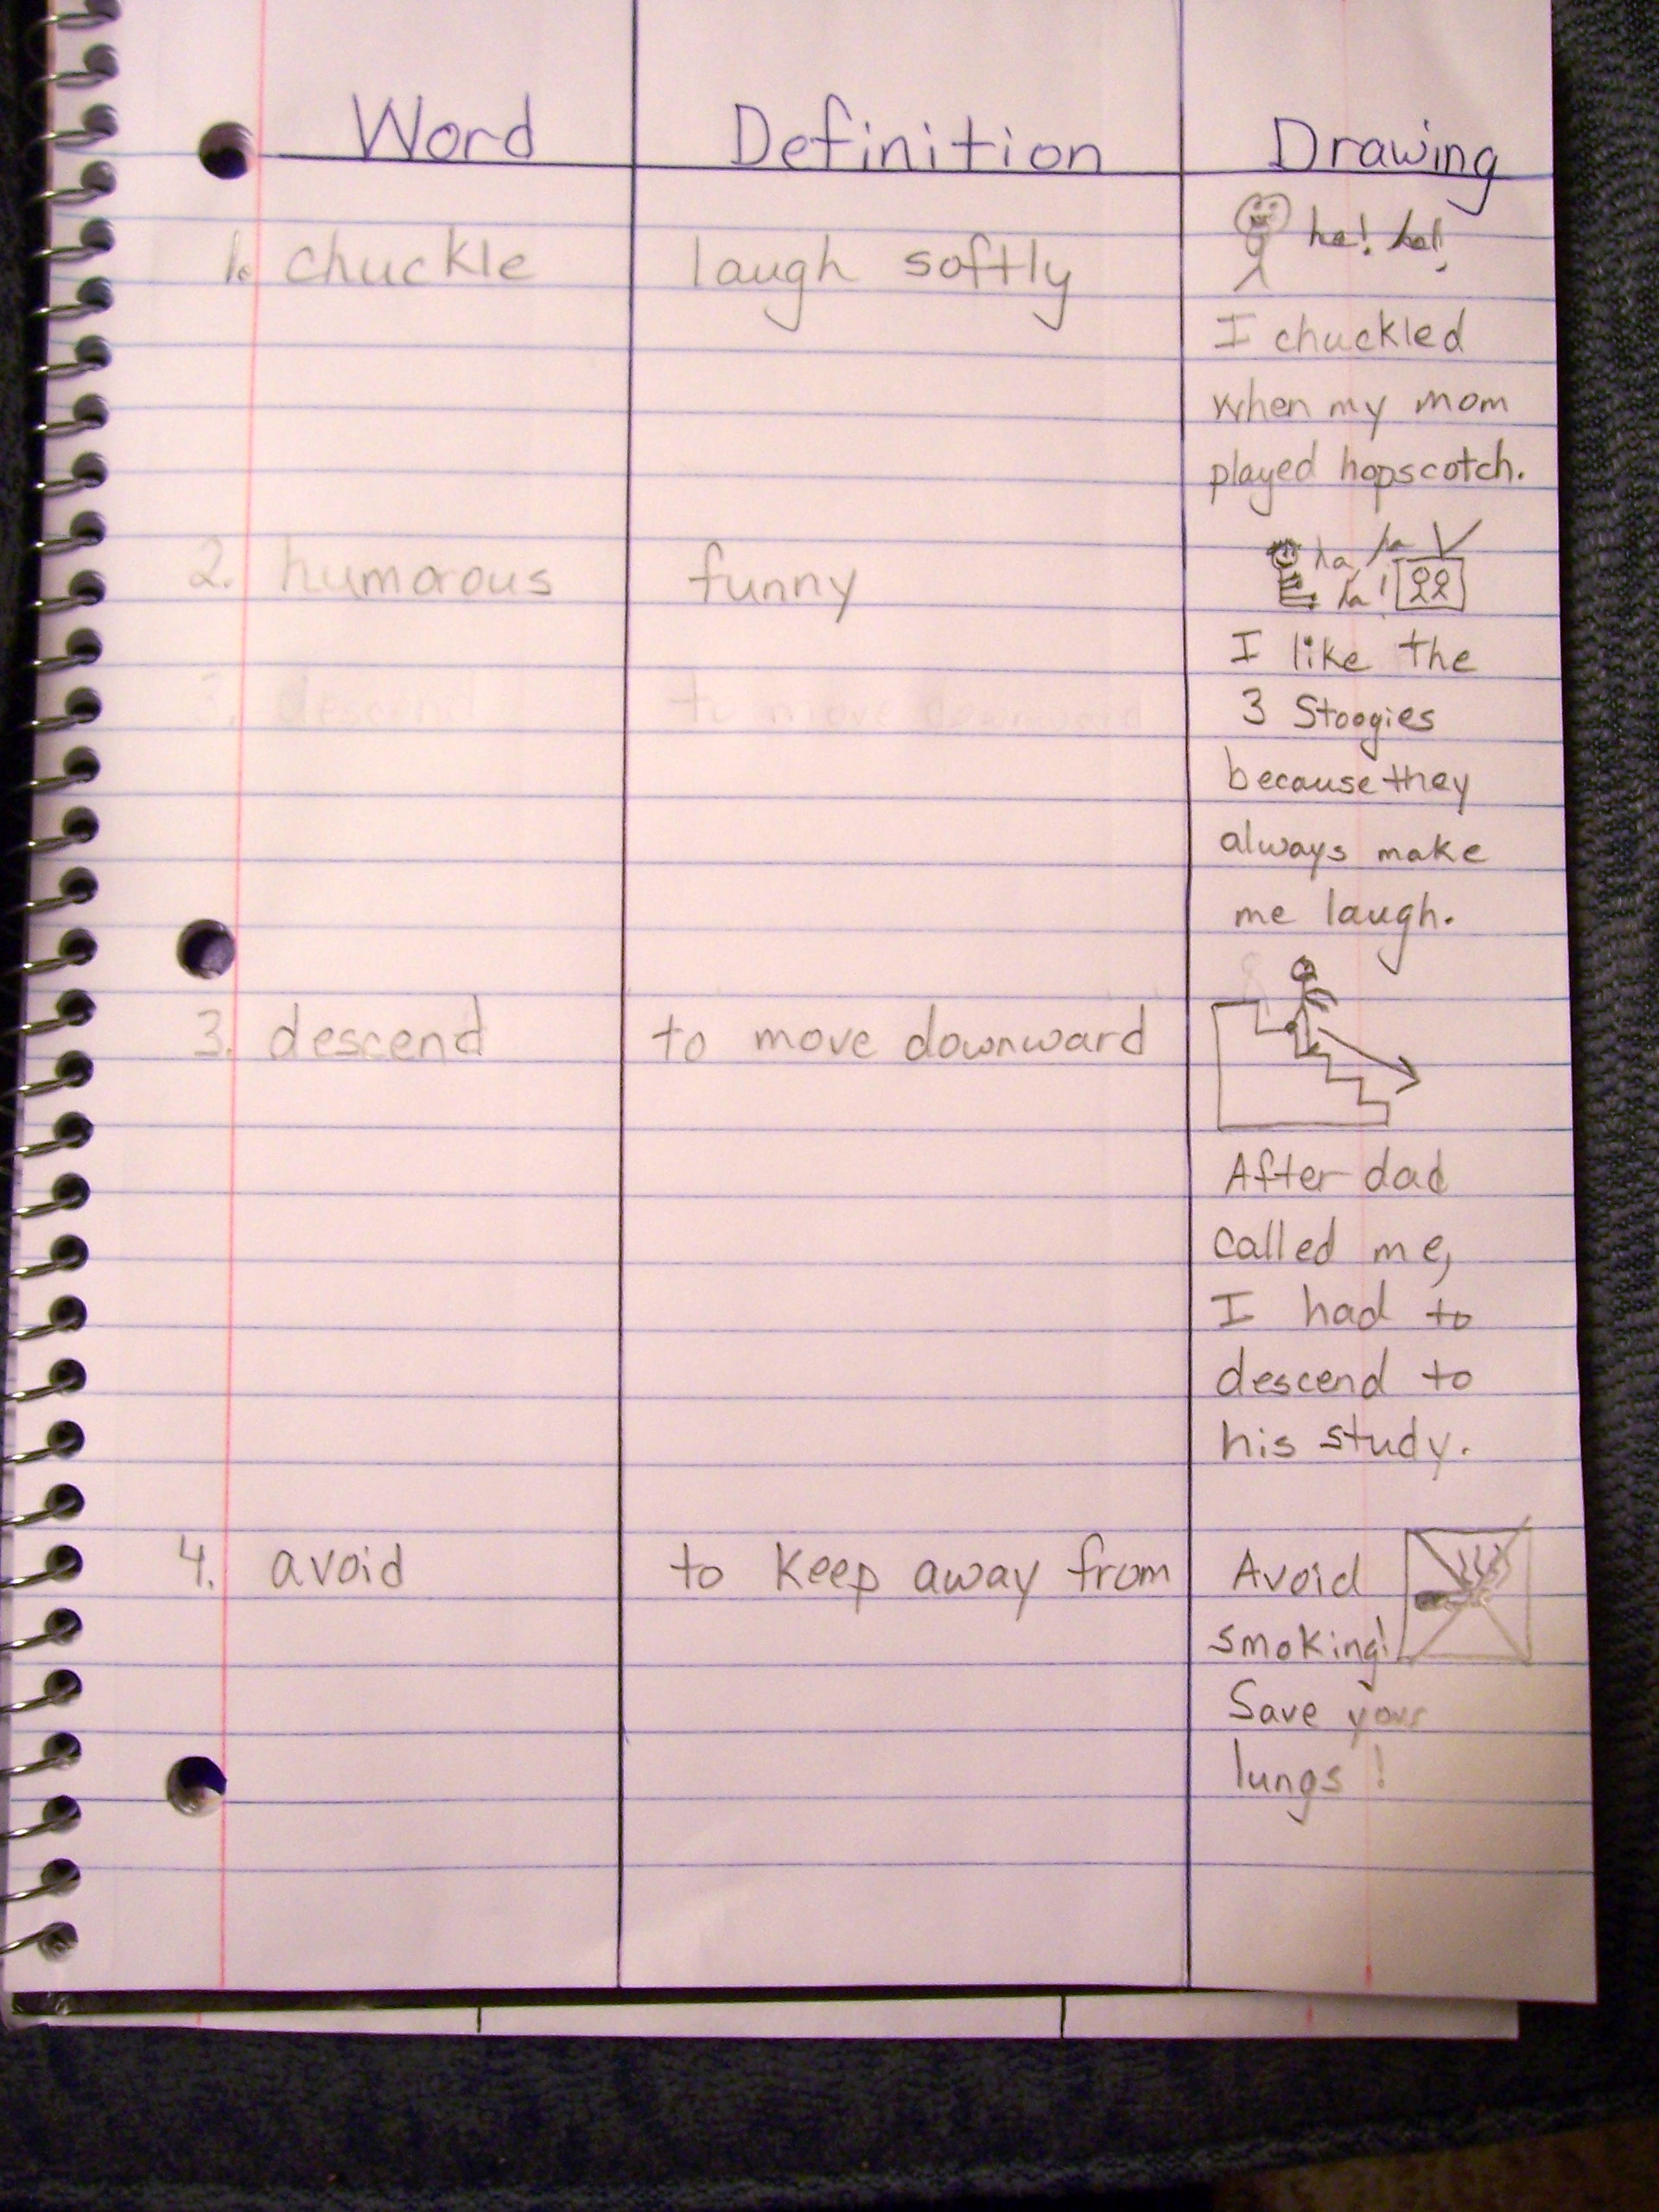 Word Definition Drawing
ha! ha!
1. chuckle laugh softly
I chuckled
when my mom
played hopscotch.
ha ha
2. humorous funny
ha!
I like the
3. descend to move downward
3 Stoogies
because they
always make
me laugh.
3. descend to move downward
After dad
called me,
I had to
descend to
his study.
4. avoid to keep away from Avoid
smoking!
Save your
lungs!